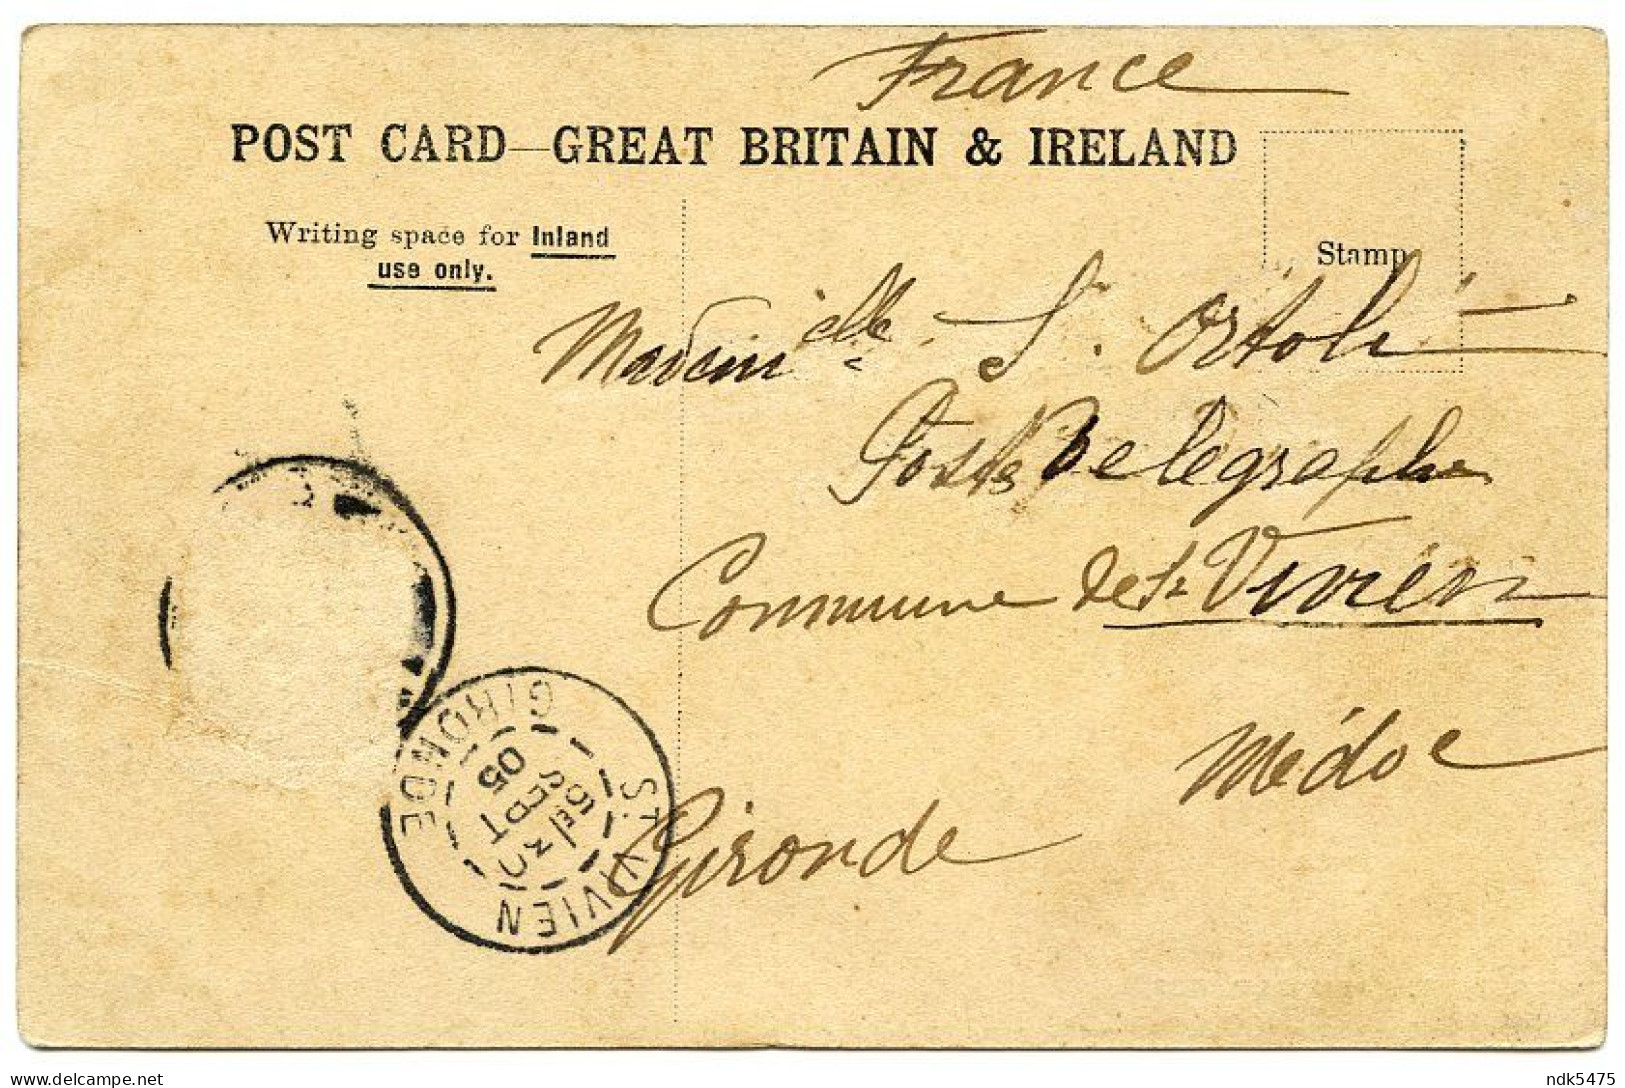 France
POST CARD—GREAT BRITAIN & IRELAND
Writing space for Inland
use only.
Stamp
S. Ortoli
Poste Telegraphe
Commune de St Vivien
Médoc
Gironde
ST VIVIEN
GIRONDE
5E 30
SEPT
05
delcampe.net
ndk5475